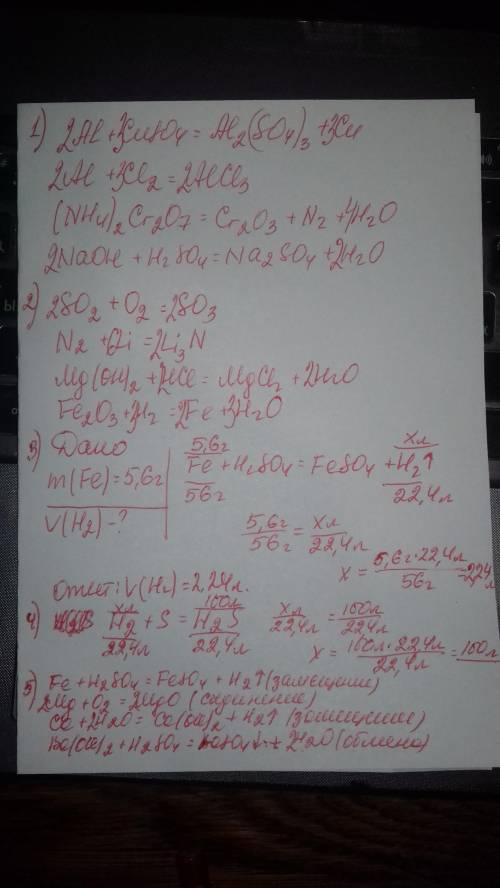 1) 2Al + 3CuSO4 = Al2(SO4)3 + 3Cu
2Al + 3Cl2 = 2AlCl3
(NH4)2Cr2O7 = Cr2O3 + N2 + 4H2O
2NaOH + H2SO4 = Na2SO4 + 2H2O
2) 2SO2 + O2 = 2SO3
N2 + 6Li = 2Li3N
Mg(OH)2 + 2HCl = MgCl2 + 2H2O
Fe2O3 + 3H2 = 2Fe + 3H2O
3) Дано
m(Fe) = 5,6г
V(H2) - ?
5,6г xл
Fe + H2SO4 = FeSO4 + H2↑
56г 22,4л
5,6г/56г = xл/22,4л
x = 5,6г·22,4л/56г = 2,24л
Ответ: V(H2) = 2,24л.
4) xл 100л
H2 + S = H2S
22,4л 22,4л
xл/22,4л = 100л/22,4л
x = 100л·22,4л/22,4л = 100л
5) Fe + H2SO4 = FeSO4 + H2↑ (замещение)
2Mg + O2 = 2MgO (соединение)
Ca + 2H2O = Ca(OH)2 + H2↑ (замещение)
Ba(OH)2 + H2SO4 = BaSO4↓ + 2H2O (обмена)